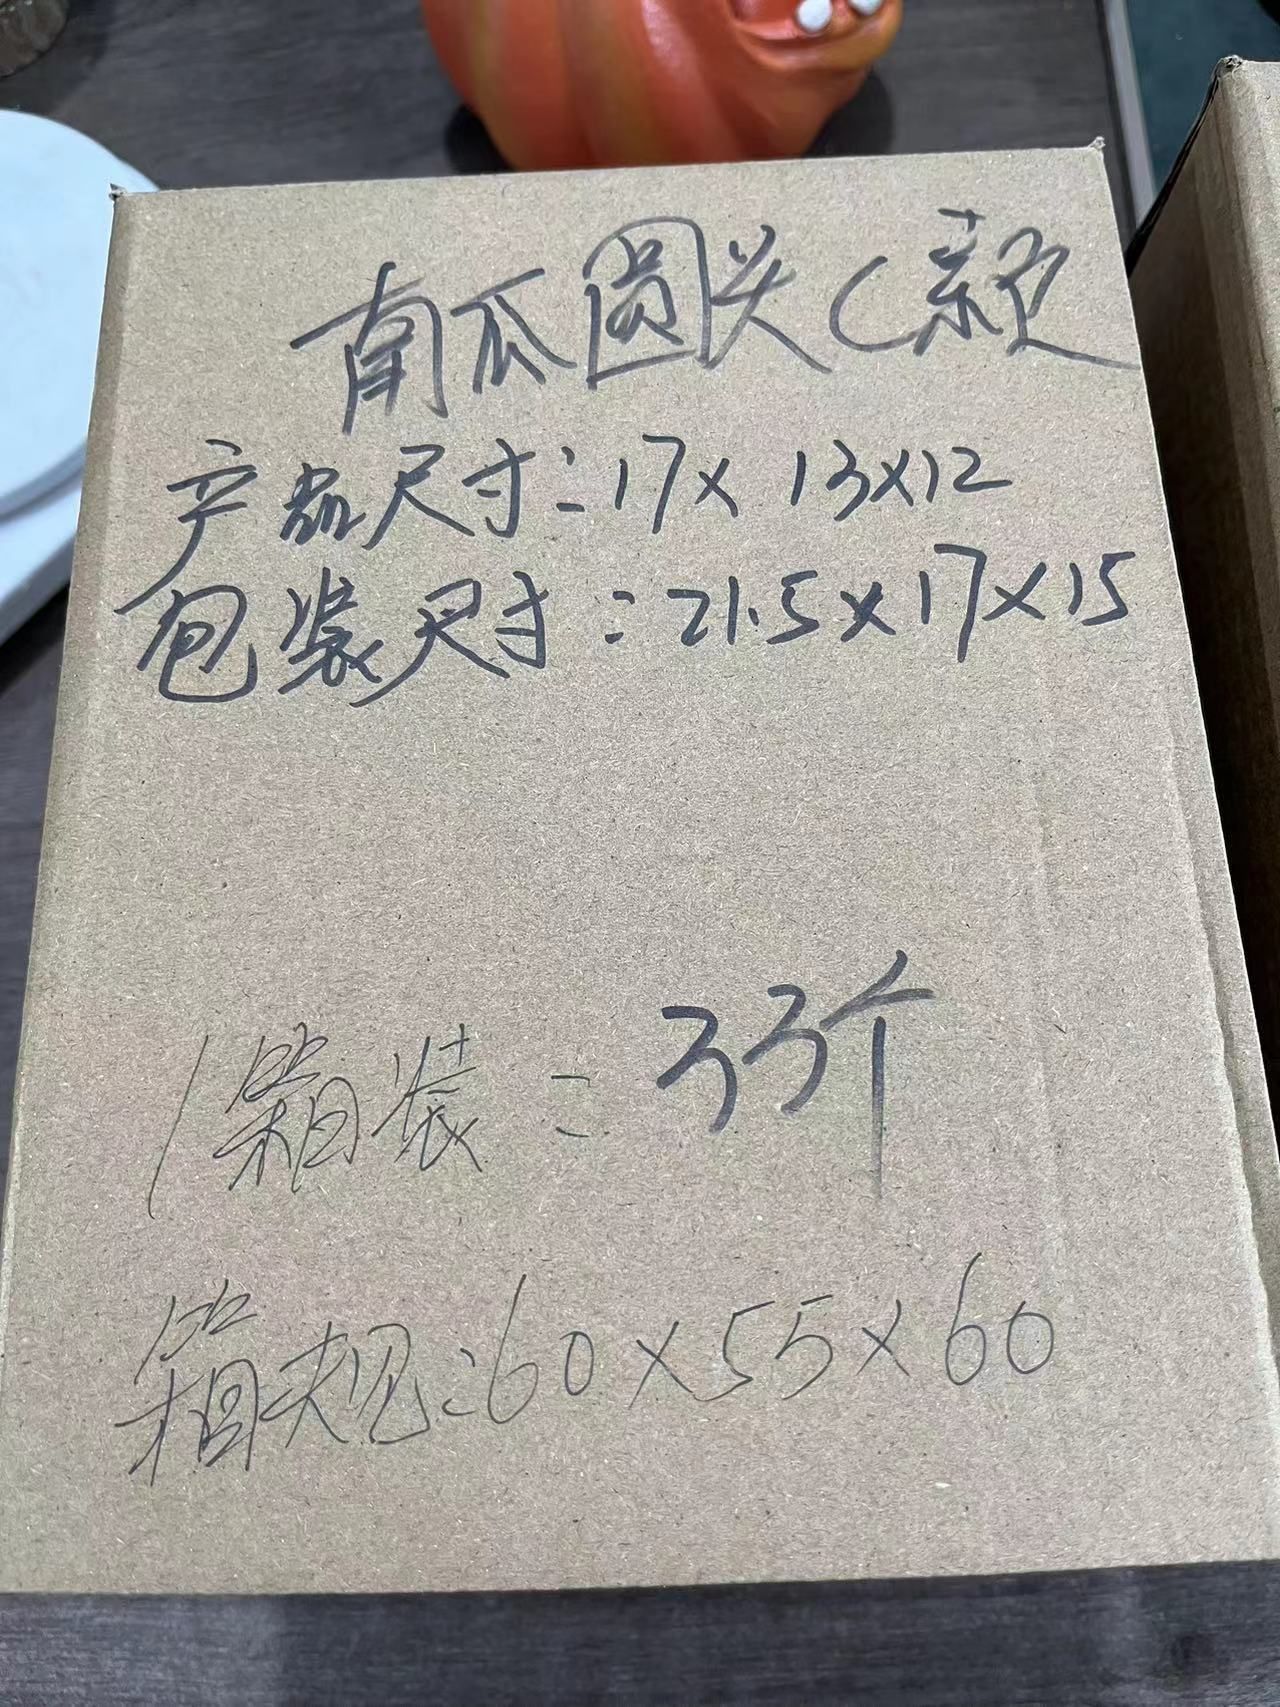 南瓜圆头C款
产品尺寸:17x13x12
包装尺寸:21.5x17x15
1箱装:33个
箱规:60x55x60